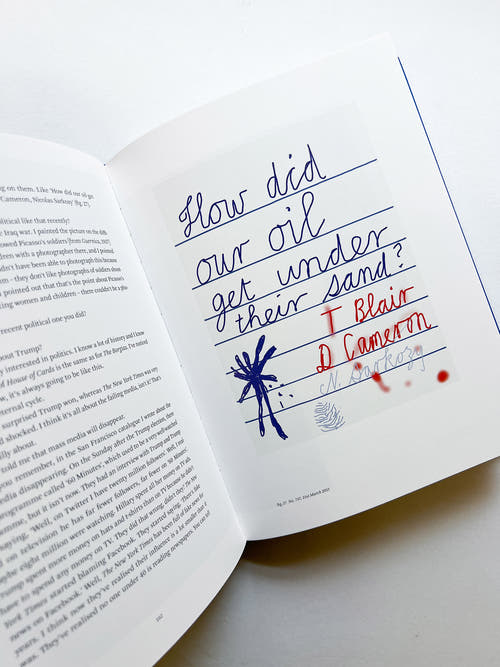 ng on them. Like 'How did our oil go
Cameron, Nicolas Sarkozy' fig. 27.
olitical like that recently?
e Iraq war. I painted the picture on the
owed Picasso's soldiers
ldren with a photographer there, and I pointed
uldn't have been able to photograph this because
en – they don't like photographs of soldiers about
pointed out that that's the point about Picasso's
ting women and children – there couldn't be a pho-
recent political one you did?
bout Trump?
y interested in politics. I know a lot of history and I know
d House of Cards is the same as for The Borgias. I'm noticed
w, it's always going to be like this.
ternal cycle.
surprised Trump won, whereas The New York Times was very
d shocked. I think it's all about the failing media, isn't it? That's
lly about.
told me that mass media will disappear.
you remember, in the San Francisco catalogue I wrote about the
edia disappearing. On the Sunday after the Trump election, there
programme called '60 Minutes', which used to be a very influential
amme, but it isn't now. They had an interview with Trump and Trump
saying, 'Well, on Twitter I have twenty million followers'. Well,
d on television he has far fewer followers, far fewer on '60 Minutes'.
aybe eight million were watching. Hillary spent all her money on TV ads.
rump spent more money on hats and t-shirts than on TV because he didn't
have to spend any money on TV. They did that wrong, didn't they? The New
York Times started blaming Facebook. They started saying, 'There's fake
news on Facebook.' Well, The New York Times has been full of fake news for
years. I think now they've realised their influence is a lot smaller than it
was. They've realised no one under 40 is reading newspapers. You can tell
How did
our oil
get under
their sand?
T Blair
D Cameron
N. Sarkozy
fig. 27 No. 747, 21st March 2011